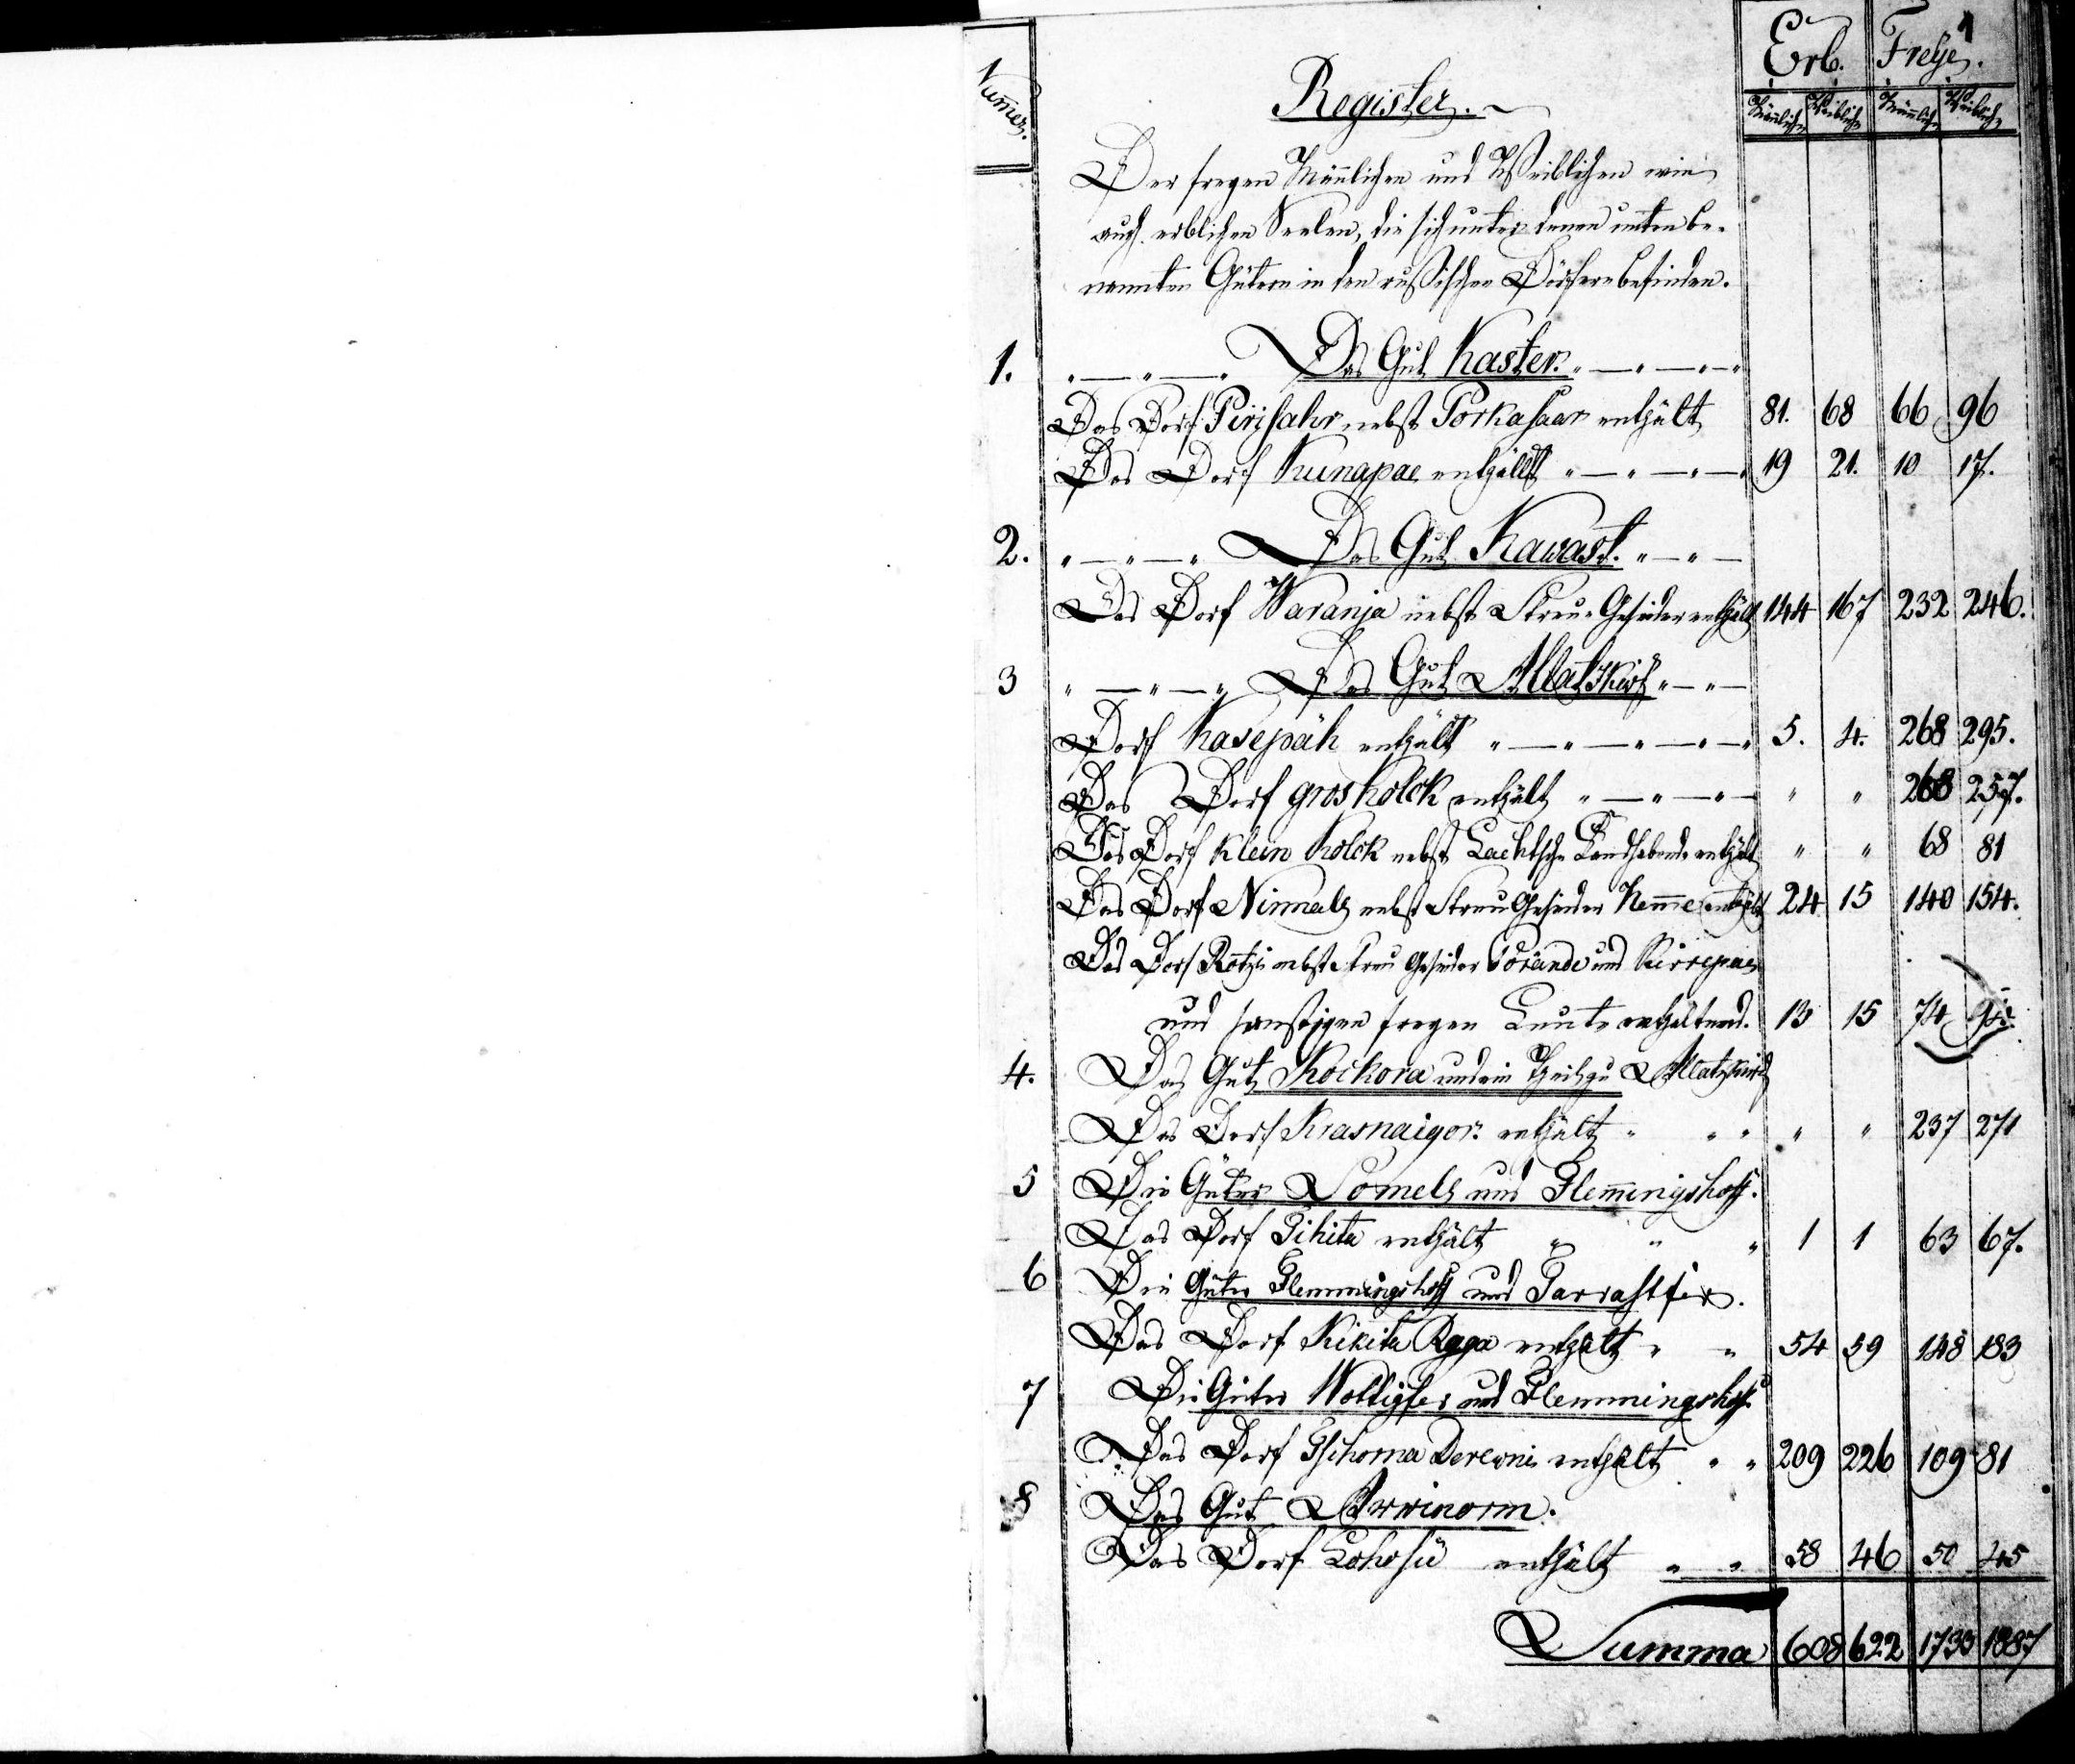 Num̅er.
Register.
Erb. Freÿe. 1
Mänlich Weiblich Mänlich Weiblich
Der freyen Mänlichen und Weiblichen wie
auch erblichen Seelen, die sich unter denen unten be-
nannten Gütern in den russischen Dörfern befinden.
1. Das Gut Kaster.
Das Dorf Pirisahr nebst Porkasaar enthält 81. 68 66 96
Das Dorf Kunapae enthällt 19 21. 10 17.
2. Das Gut Kawast.
Das Dorf Waranja nebst Streu-Gesinder enthält 144 167 232 246.
3 Das Gut Allatzkiwi
Dorf Kasepäh enthält 5. 4. 268 295.
Das Dorf gros Kolck enthält " " 268 257.
Das Dorf Klein Kolck nebst Lachtsche Landhabende enthält " " 68 81
Das Dorf Ninnal nebst Streu Gesinder Nem̅e enthält 24 15 140 154.
Das Dorf Rotzi nebst Streu Gesinder und Kirrepae
und sonstigen freyen Leute enthältend. 13 15 74
4. Das Gut Kockora und ein Theil zu Allatzkiwi
Das Dorf Krasnaigor enthält " " 237 271
5 Die Güter und Flem̅ingshoff.
Das Dorf Tihita enthält 1 1 63 67.
6 Die Güter Flemmingshoff und Tarrastfer.
Das Dorf Kikita Raja enthält 54 59 148 183
7 Die Güter Wottigfer und Flemmingshoff
Das Dorf Tschorna Derewni enthält 209 226 109 81
8 Das Gut Awwinorm.
Das Dorf Lohosu enthält 58 46 50 45
Summa 608 622 1733 1887